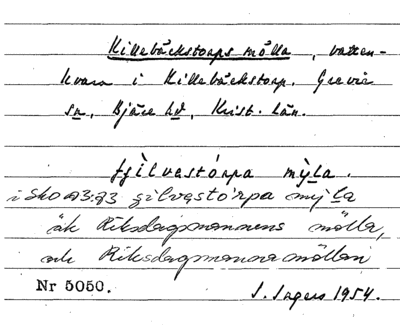 Killebäckstorps mölla, vatten-
kvarn i Killebäckstorp. Grevie
sn, Bjäre hd, Krist. län.
i Sko A3:93 gilvestórpa mýla
äk Riksdagsmannens mölla,
och Riksdagsmannamöllan
Nr 5050. S. Ingers 1954.